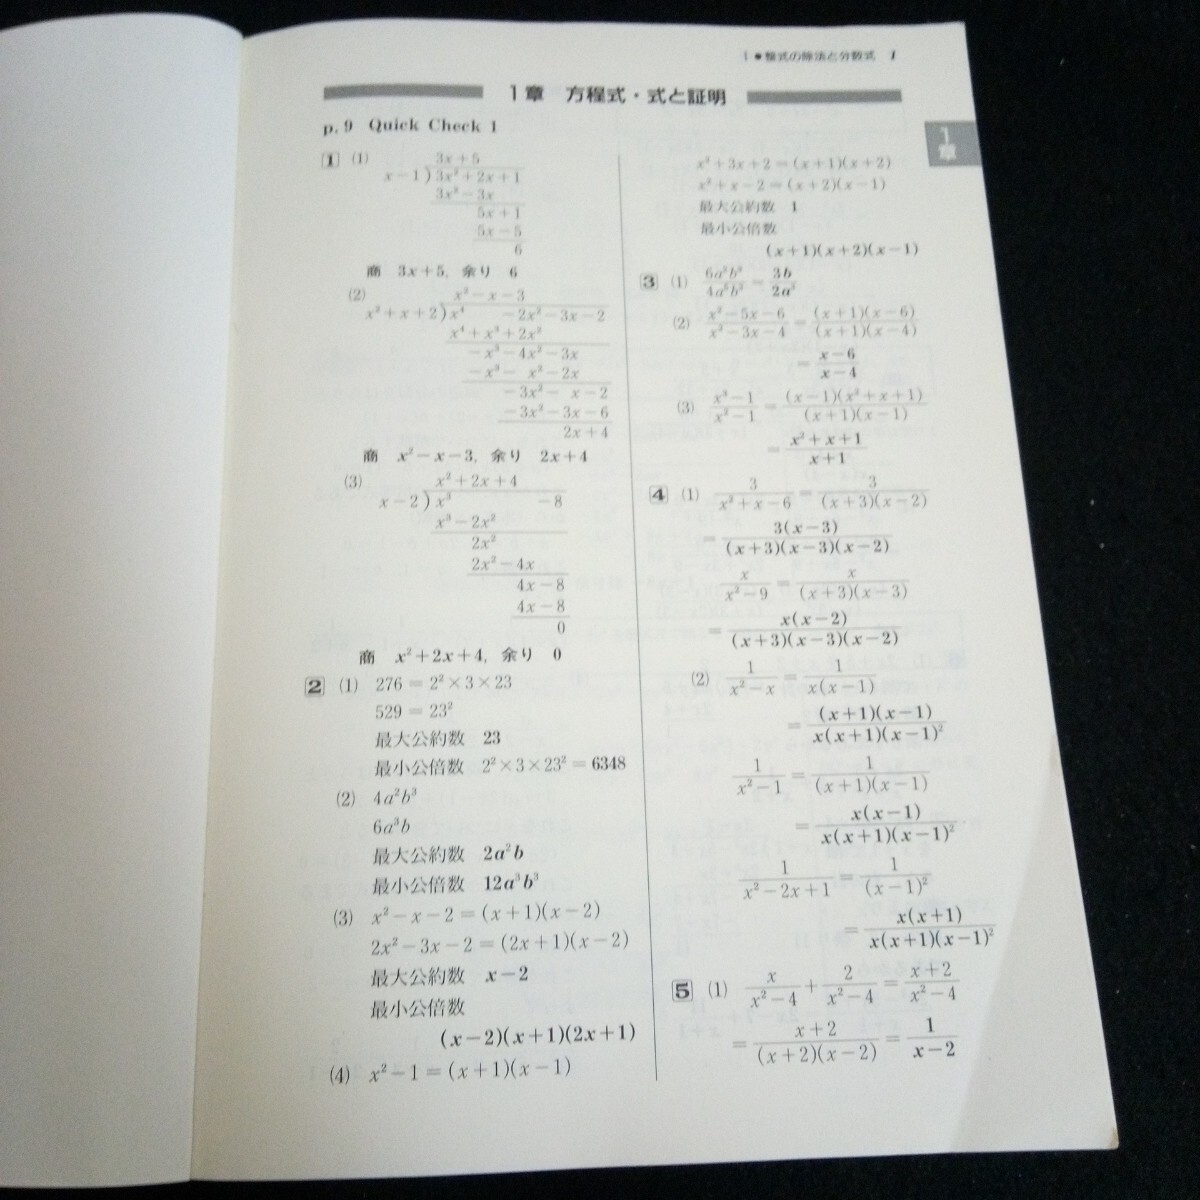 1●整式の除法と分数式 1
1章 方程式・式と証明
1章
p.9 Quick Check 1
1 (1) 3x+5
x-1)3x²+2x+1
3x²-3x
5x+1
5x-5
6
商 3x+5, 余り 6
(2) x²-x-3
x²+x+2)x⁴ -2x²-3x-2
x⁴+x³+2x²
-x³-4x²-3x
-x³- x²-2x
-3x²- x-2
-3x²-3x-6
2x+4
商 x²-x-3, 余り 2x+4
(3) x²+2x+4
x-2)x³ -8
x³-2x²
2x²
2x²-4x
4x-8
4x-8
0
商 x²+2x+4, 余り 0
2 (1) 276=2²×3×23
529=23²
最大公約数 23
最小公倍数 2²×3×23²=6348
(2) 4a²b³
6a³b
最大公約数 2a²b
最小公倍数 12a³b³
(3) x²-x-2=(x+1)(x-2)
2x²-3x-2=(2x+1)(x-2)
最大公約数 x-2
最小公倍数
(x-2)(x+1)(2x+1)
(4) x²-1=(x+1)(x-1)
x²+3x+2=(x+1)(x+2)
x²+x-2=(x+2)(x-1)
最大公約数 1
最小公倍数
(x+1)(x+2)(x-1)
3 (1) 6a²b³/4a⁵b² = 3b/2a³
(2) x²-5x-6/x²-3x-4 = (x+1)(x-6)/(x+1)(x-4)
= x-6/x-4
(3) x³-1/x²-1 = (x-1)(x²+x+1)/(x+1)(x-1)
= x²+x+1/x+1
4 (1) 3/x²+x-6 = 3/(x+3)(x-2)
= 3(x-3)/(x+3)(x-3)(x-2)
x/x²-9 = x/(x+3)(x-3)
= x(x-2)/(x+3)(x-3)(x-2)
(2) 1/x²-x = 1/x(x-1)
= (x+1)(x-1)/x(x+1)(x-1)²
1/x²-1 = 1/(x+1)(x-1)
= x(x-1)/x(x+1)(x-1)²
1/x²-2x+1 = 1/(x-1)²
= x(x+1)/x(x+1)(x-1)²
5 (1) x/x²-4 + 2/x²-4 = x+2/x²-4
= x+2/(x+2)(x-2) = 1/x-2